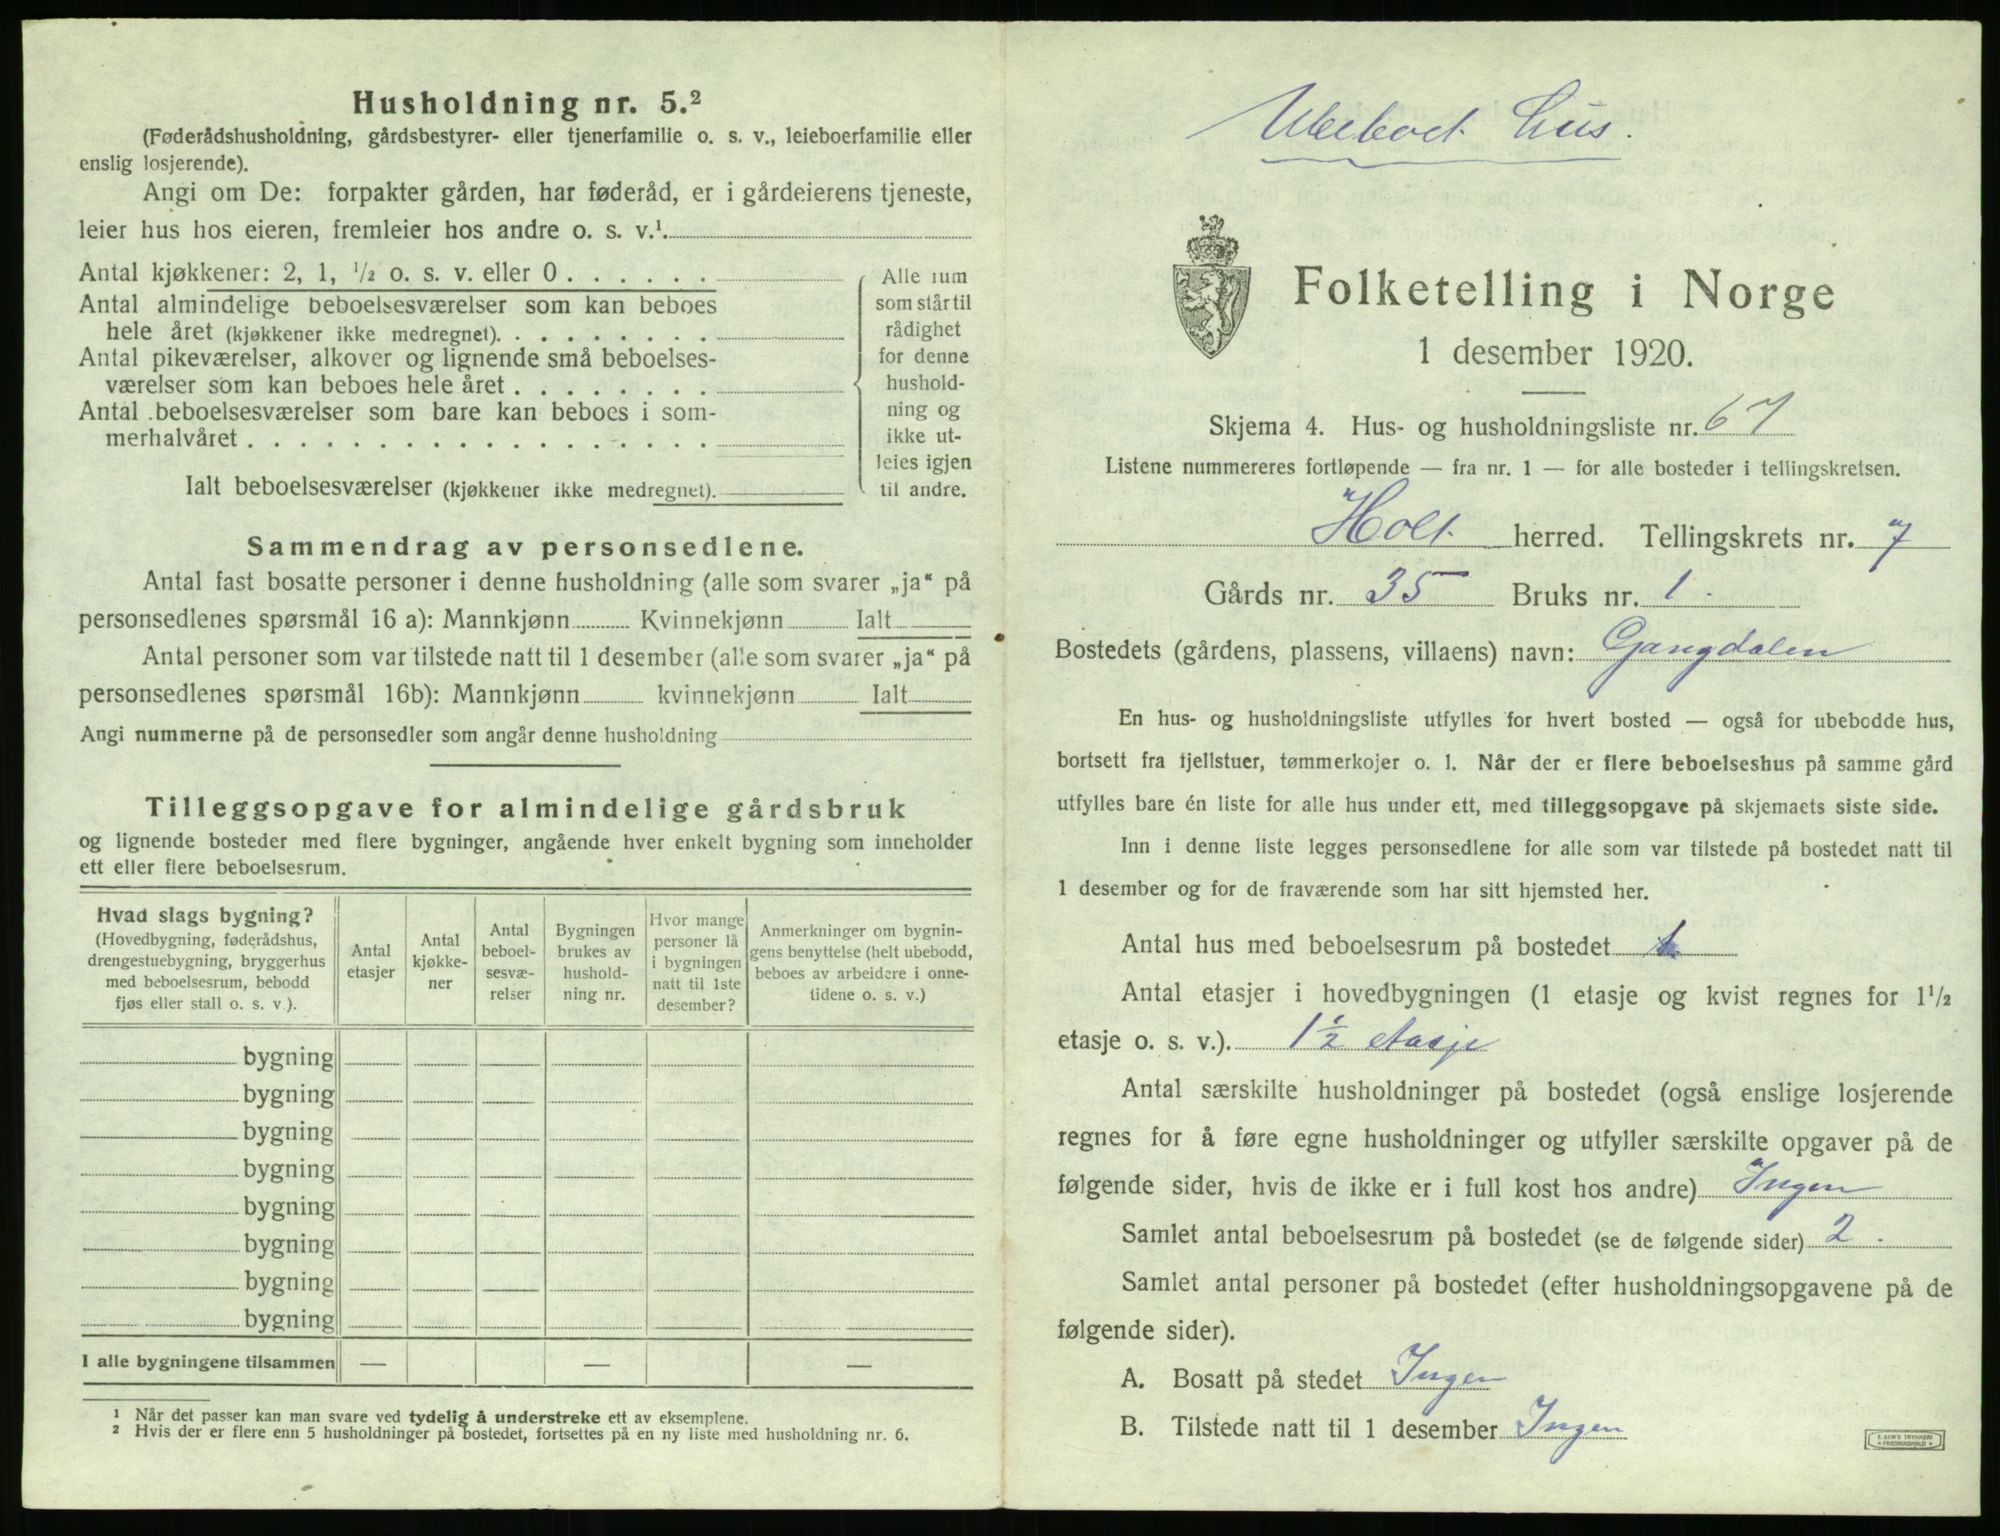 Husholdning nr. 5.²
(Føderådshusholdning, gårdsbestyrer- eller tjenerfamilie o. s. v., leieboerfamilie eller
enslig losjerende).
Angi om De: forpakter gården, har føderåd, er i gårdeierens tjeneste,
leier hus hos eieren, fremleier hos andre o. s. v.¹.
Antal kjøkkener: 2, 1, ½ o. s. v. eller 0 . . . . . .
Antal almindelige beboelsesværelser som kan beboes
hele året (kjøkkener ikke medregnet). . . . . . . . .
Antal pikeværelser, alkover og lignende små beboelses-
værelser som kan beboes hele året . . . . . . . .
Antal beboelsesværelser som bare kan beboes i som-
merhalvåret . . . . . . . . . . . . . . . . . .
Ialt beboelsesværelser (kjøkkener ikke medregnet).
Alle rum
som står til
rådighet
for denne
hushold-
ning og
ikke ut-
leies igjen
til andre.
Sammendrag av personsedlene.
Antal fast bosatte personer i denne husholdning (alle som svarer „ja“ på
personsedlenes spørsmål 16 a): Mannkjønn Kvinnekjønn Ialt
Antal personer som var tilstede natt til 1 desember (alle som svarer „ja“ på
personsedlenes spørsmål 16b): Mannkjønn kvinnekjønn Ialt
Angi nummerne på de personsedler som angår denne husholdning
Tilleggsopgave for almindelige gårdsbruk
og lignende bosteder med flere bygninger, angående hver enkelt bygning som inneholder
ett eller flere beboelsesrum.
Hvad slags bygning?
(Hovedbygning, føderådshus,
drengestuebygning, bryggerhus
med beboelsesrum, bebodd
fjøs eller stall o. s. v.).
Antal
etasjer
Antal
kjøkke-
ner
Antal
beboel-
sesvæ-
relser
Bygningen
brukes av
hushold-
ning nr.
Hvor mange
personer lå
i bygningen
natt til 1ste
desember?
Anmerkninger om bygnin-
gens benyttelse (helt ubebodd,
beboes av arbeidere i onne-
tidene o. s. v.)
bygning
bygning
bygning
bygning
bygning
bygning
bygning
bygning
I alle bygningene tilsammen — — —
¹ Når det passer kan man svare ved tydelig å understreke ett av eksemplene.
² Hvis der er flere enn 5 husholdninger på bostedet, fortsettes på en ny liste med husholdning nr. 6.
Ubeboet hus.
Folketelling i Norge
1 desember 1920.
Skjema 4. Hus- og husholdningsliste nr. 67
Listene nummereres fortløpende — fra nr. 1 — for alle bosteder i tellingskretsen.
Holt herred. Tellingskrets nr. 7
Gårds nr. 35 Bruks nr. 1.
Bostedets (gårdens, plassens, villaens) navn: Gangdalen
En hus- og husholdningsliste utfylles for hvert bosted — også for ubebodde hus,
bortsett fra fjellstuer, tømmerkojer o. l. Når der er flere beboelseshus på samme gård
utfylles bare én liste for alle hus under ett, med tilleggsopgave på skjemaets siste side.
Inn i denne liste legges personsedlene for alle som var tilstede på bostedet natt til
1 desember og for de fraværende som har sitt hjemsted her.
Antal hus med beboelsesrum på bostedet 1
Antal etasjer i hovedbygningen (1 etasje og kvist regnes for 1½
etasje o. s. v.). 1½ etasje
Antal særskilte husholdninger på bostedet (også enslige losjerende
regnes for å føre egne husholdninger og utfyller særskilte opgaver på de
følgende sider, hvis de ikke er i full kost hos andre) Ingen
Samlet antal beboelsesrum på bostedet (se de følgende sider) 2.
Samlet antal personer på bostedet (efter husholdningsopgavene på de
følgende sider).
A. Bosatt på stedet Ingen
B. Tilstede natt til 1 desember Ingen
E. SEM'S TRYKKERI
FREDRIKSHALD